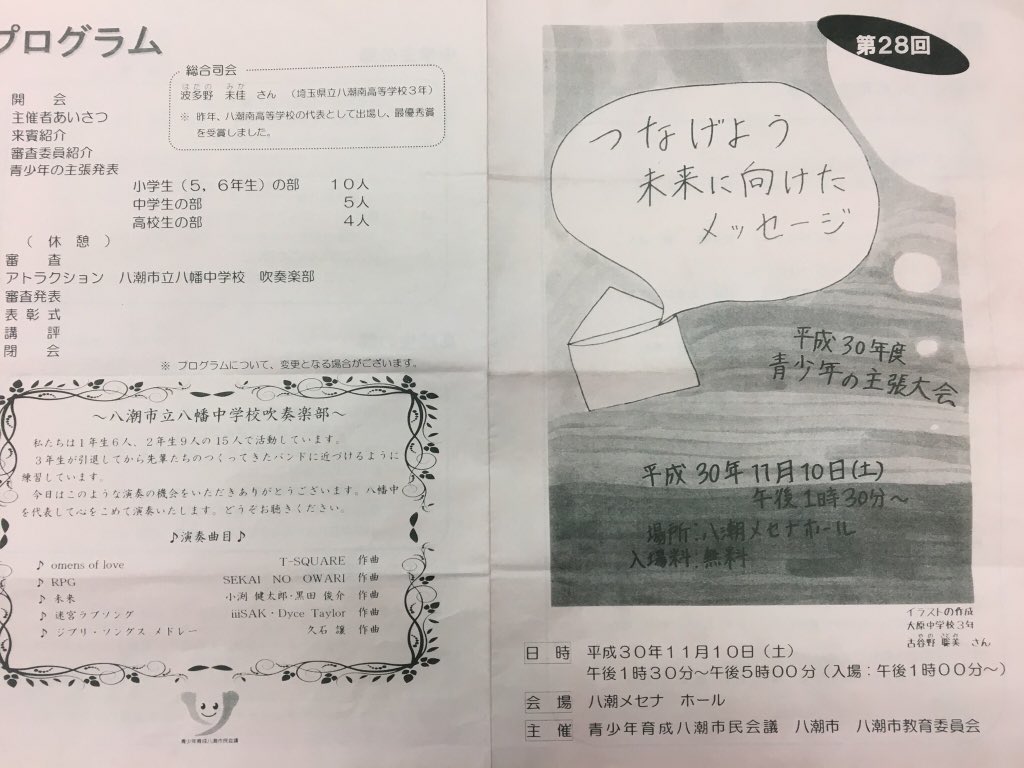 プログラム
総合司会
はたの みか
波多野 未佳 さん （埼玉県立八潮南高等学校３年）
※ 昨年、八潮南高等学校の代表として出場し、最優秀賞
を受賞しました。
開 会
主催者あいさつ
来賓紹介
審査委員紹介
青少年の主張発表
小学生（５，６年生）の部 １０人
中学生の部 ５人
高校生の部 ４人
（ 休 憩 ）
審 査
アトラクション 八潮市立八幡中学校 吹奏楽部
審査発表
表 彰 式
講 評
閉 会
※ プログラムについて、変更となる場合がございます。
～八潮市立八幡中学校吹奏楽部～
私たちは１年生６人、２年生９人の15人で活動しています。
３年生が引退してから先輩たちのつくってきたバンドに近づけるように
練習しています。
今日はこのような演奏の機会をいただきありがとうございます。八幡中
を代表して心をこめて演奏いたします。どうぞお聴きください。
♪演奏曲目♪
♪ omens of love T-SQUARE 作曲
♪ RPG SEKAI NO OWARI 作曲
♪ 未来 小渕 健太郎・黒田 俊介 作曲
♪ 迷宮ラブソング iiiSAK・Dyce Taylor 作曲
♪ ジブリ・ソングス メドレー 久石 譲 作曲
青少年育成八潮市民会議
第２８回
つなげよう
未来に向けた
メッセージ
平成30年度
青少年の主張大会
平成30年11月10日(土)
午後1時30分～
場所:八潮メセナホール
入場料:無料
イラストの作成
大原中学校３年
古谷野 さん
日 時 平成３０年１１月１０日（土）
午後１時３０分～午後５時００分（入場：午後１時００分～）
会 場 八潮メセナ ホール
主 催 青少年育成八潮市民会議 八潮市 八潮市教育委員会